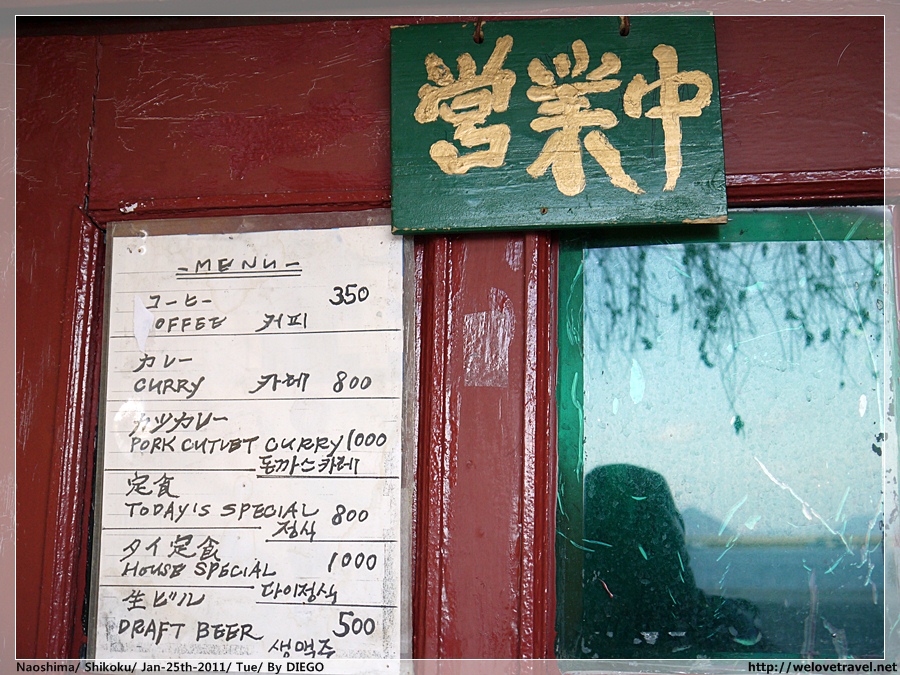 営業中
-MENU-
コーヒー 350
COFFEE 커피
カレー
CURRY 카레 800
カツカレー
PORK CUTLET CURRY 1000
돈까스카레
定食
TODAY'S SPECIAL 800
정식
タイ定食
HOUSE SPECIAL 1000
다이정식
生ビル
DRAFT BEER 500
생맥주
Naoshima/ Shikoku/ Jan-25th-2011/ Tue/ By DIEGO
http://welovetravel.net